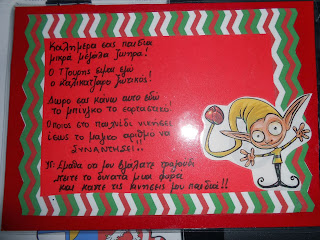 Καλημέρα σας παιδιά
μικρά μεγάλα ζωηρά!
Ο Τζούρης είμαι εγώ
ο καλικάτζαρος
Δώρο σας κάνω αυτό εδώ
το μπίνγκο το εορταστικό!
Όποιος στο παιχνίδι νικήσει
ίσως το μαγικό αριθμό να
ΣΥΝΑΝΤΗΣΕΙ!..
ΥΓ: Έμαθα να μου βγάλατε τραγούδι
πείτε το δυνατά μια φορά
και κάντε τις κινήσεις μου παιδιά!!